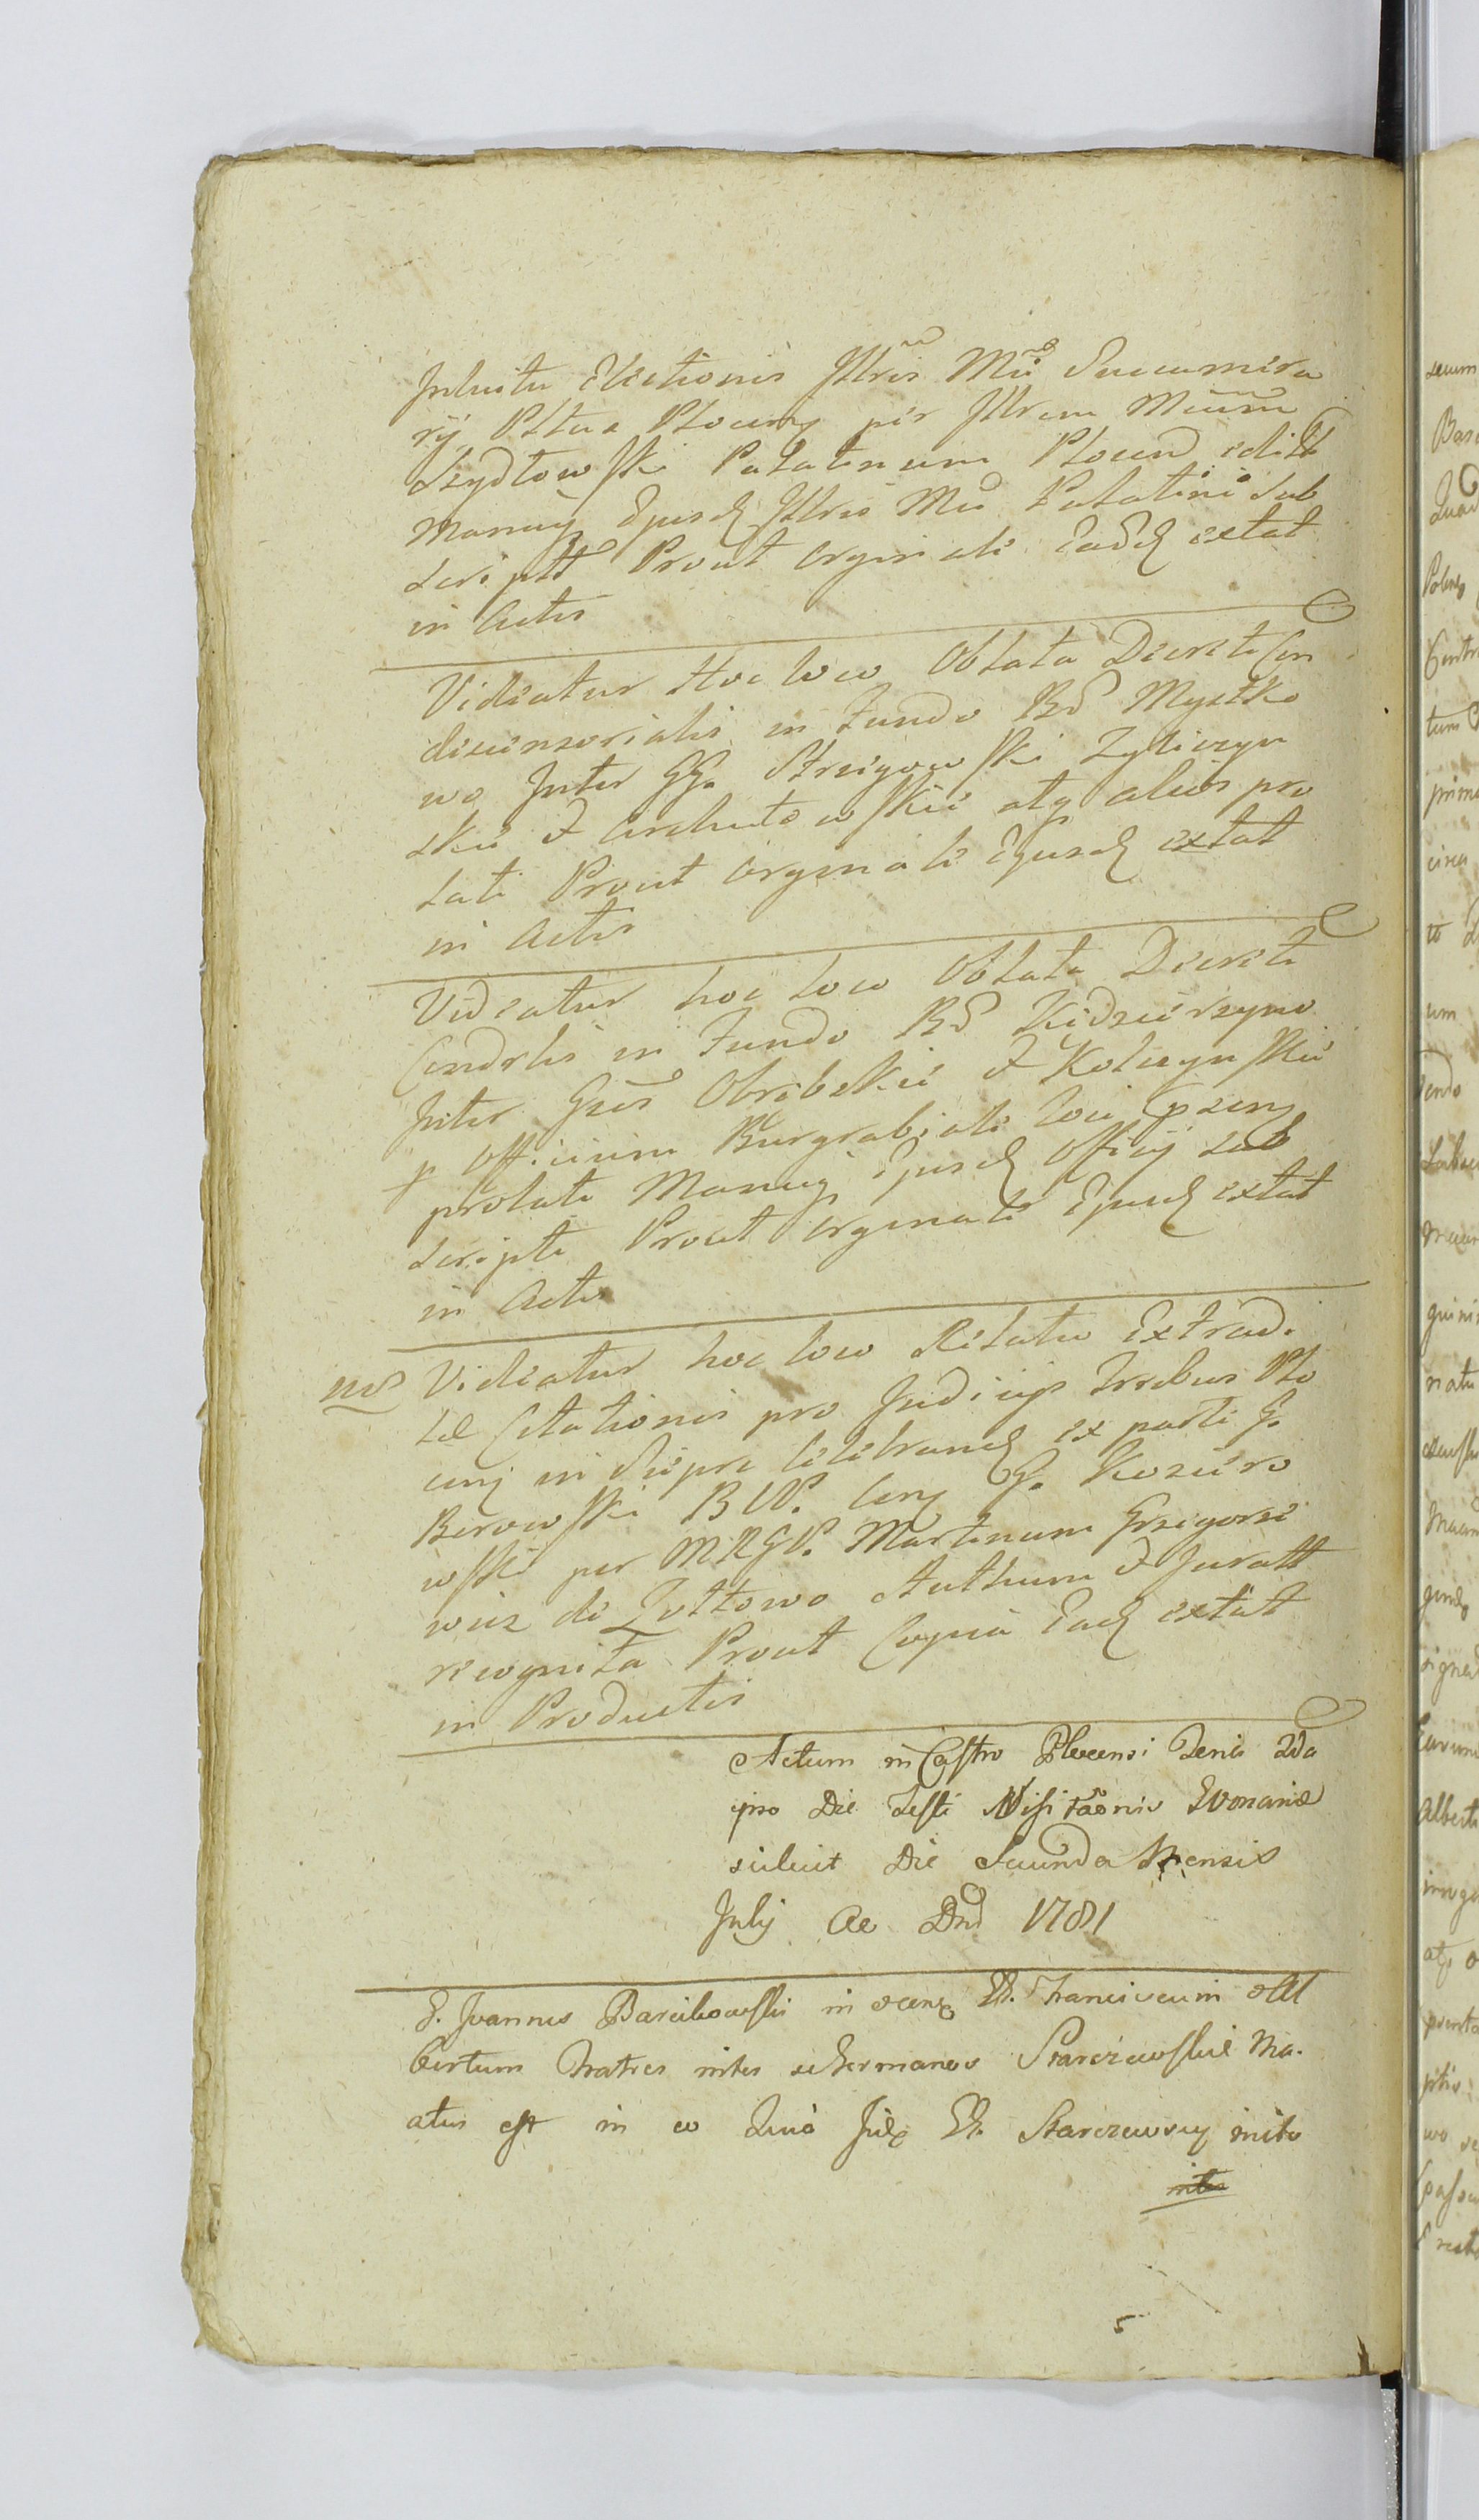 Intuitu Electionis Illris Mci Succamera
rij Pltus Plocensis per Illrem Mcum
Szydłowski Palatinum Plocen edit
manuq Ejusd Illris Mci Palatini sub
script Prout orginale Ead extat
in Actis
Videatur Hoc loco Oblata Decreti Con
discensorialis in Fundo Bd Myszko
wo Inter GG. Strzigowski Zyliczyn
skii et atq aliis pro
lati Prout orginale Ejusd extat
in Actis
Videatur hoc loco Oblata Decreti
Condslis in Fundo Bd Kidzierzyno
Inter Gsos Obrebskii et Kolczynskii
p Officium Burgrabiale loci
prolati Manuq Ejusd Officij sub
scripti Prout orginale Ejusd extat
in Actis
Videatur hoc loco Relatio Extrad.
tae Citationis pro Judicijs Trrlbus Plo
cen in Siepre celebrand ex parte G.
Berowski B W. G. Kozuro
wski per MRGP. Martinum Grzegorze
wicz de Zottowo Authum et Juratt
recognita Prout Copia Ead extat
in Productis
Actum in Castro Plocensi Feria 2da
ipso Die Festi Visitaonis
scilicet Die Secunda Mensis
Julij Ao Dni 1781
G. Joannes Barcikowski in Franciscum et Al
bertum Fratres inter se Germanos Starczewskie
atus est in eo Quia G. inito